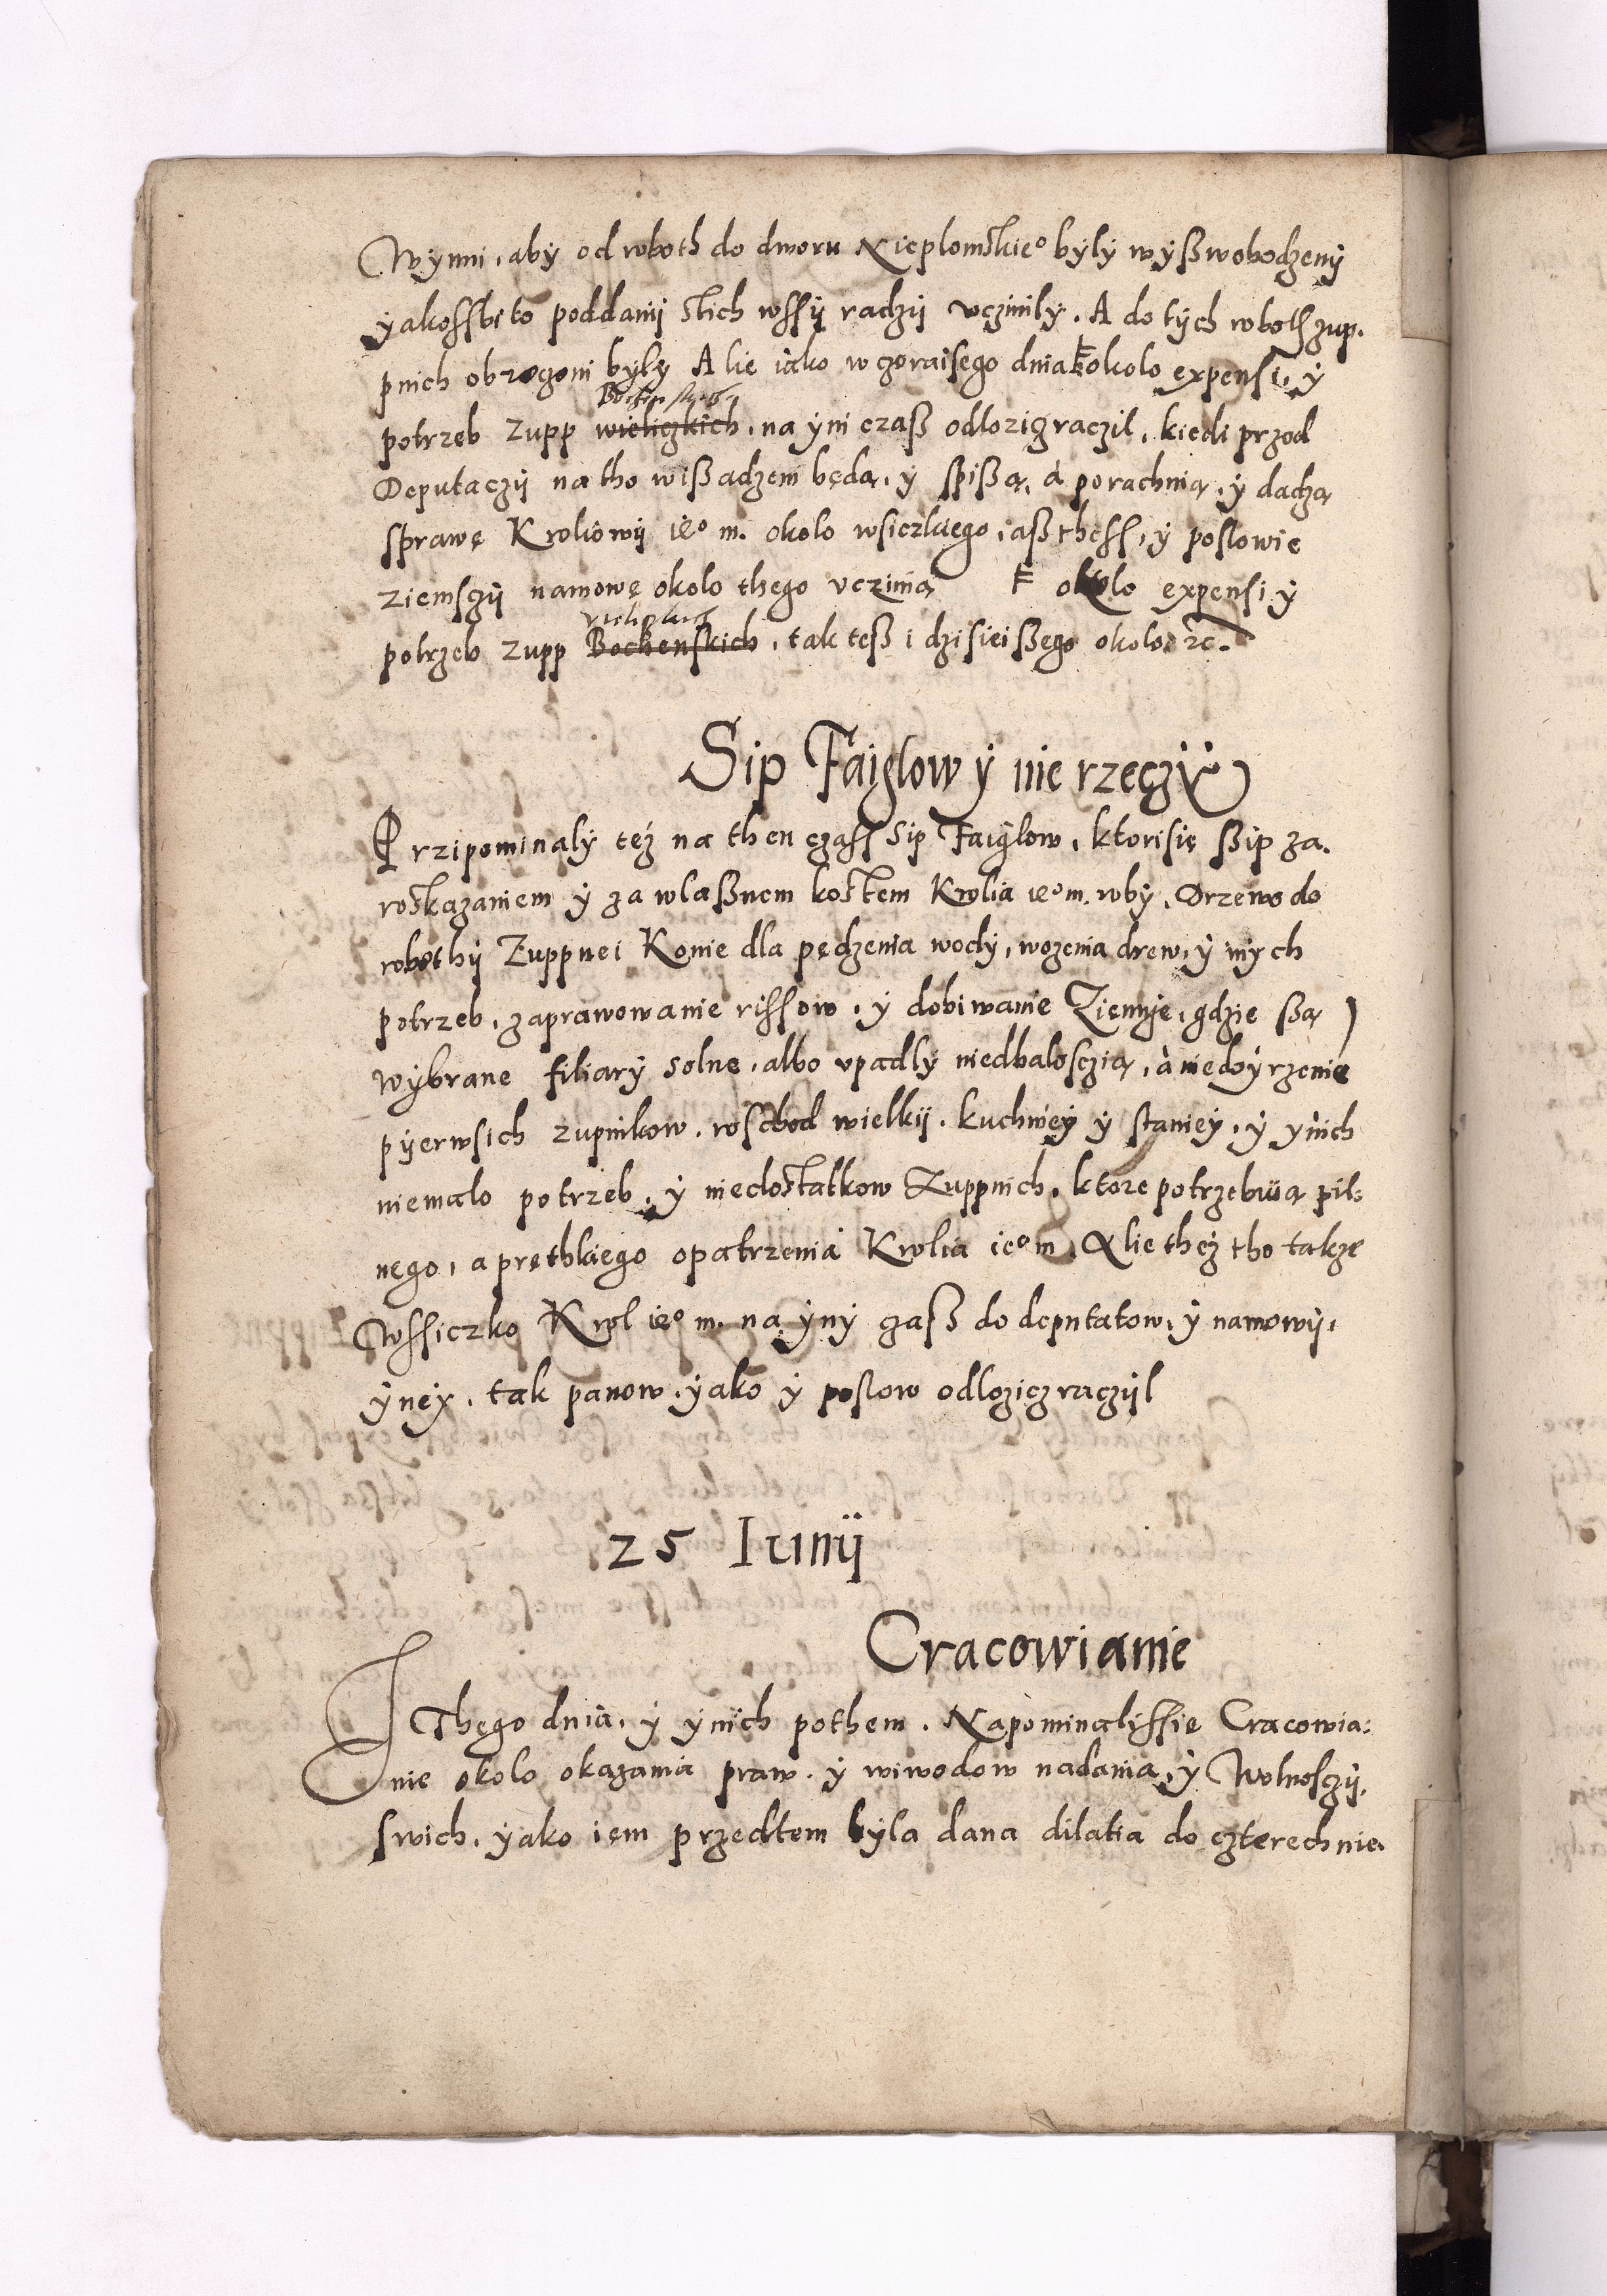 Wynni, aby od roboth do dworu Nieplomskieº były wyßwobodzeny
yakossbi to poddanij stich wssij radzij vczinily. A do tych roboth zup.
pnich obrogoni były Alie iáko wczoraisego dnia F okolo expensi, ÿ
Bochenskich
potrzeb Zupp wieliczkich, na ýni czaß odlozicz raczil, kiedi przod
Deputaczij na tho wißadzeni będą, ý spißą, á porachnią, ý dadzą
sprawę Kroliowij ieº m. okolo wsiczkiego, aß thess, ý poslowie
ziemsczij namowę okolo thego vczinią F okolo expensi ý
wielickich
potrzeb zupp Bochenskich, tak teß i dzisieißego okolo ꝛc.
Sip Faiglow ý nie rzeczÿ
Przipominalý też na then czass Sip Faiglow, ktorisię ßip za.
roskazaniem ý za wlaßnem kostem Krolia ieº m. roby, Drzewo do
robothij Zuppnei Konie dla pędzenia wody, wozenia drew, ý inych
potrzeb, zaprawowanie rissow, ý dobiwanie Ziemie, gdzie ßą
wýbrane filiarý solne, albo vpadlý niedbalosczią, á niedoyrzenie
pyerwsich zupnikow, roschod wielkij, kuchniey ý staniey, ý ynich
niemalo potrzeb, ý niedostatkow Zuppnich, ktore potrzebuią pil:
nego, a prethkiego opatrzenia Krolia ieº m. Alie theż tho takze
Wssiczko Krol ieº m. na ýný czaß do deputatow, ý namowij,
ýney, tak panow, ýako ý poslow odlozicz raczýl
25 Iunij
Cracowianie
Thego dnia, ý ynich pothem. Napominalÿssie Cracowia:
nie okolo okazania praw, ý wiwodow nadania, ý Wolnosczij,
swich, ýako iem przedtem była dana dilatia do czterech nie.